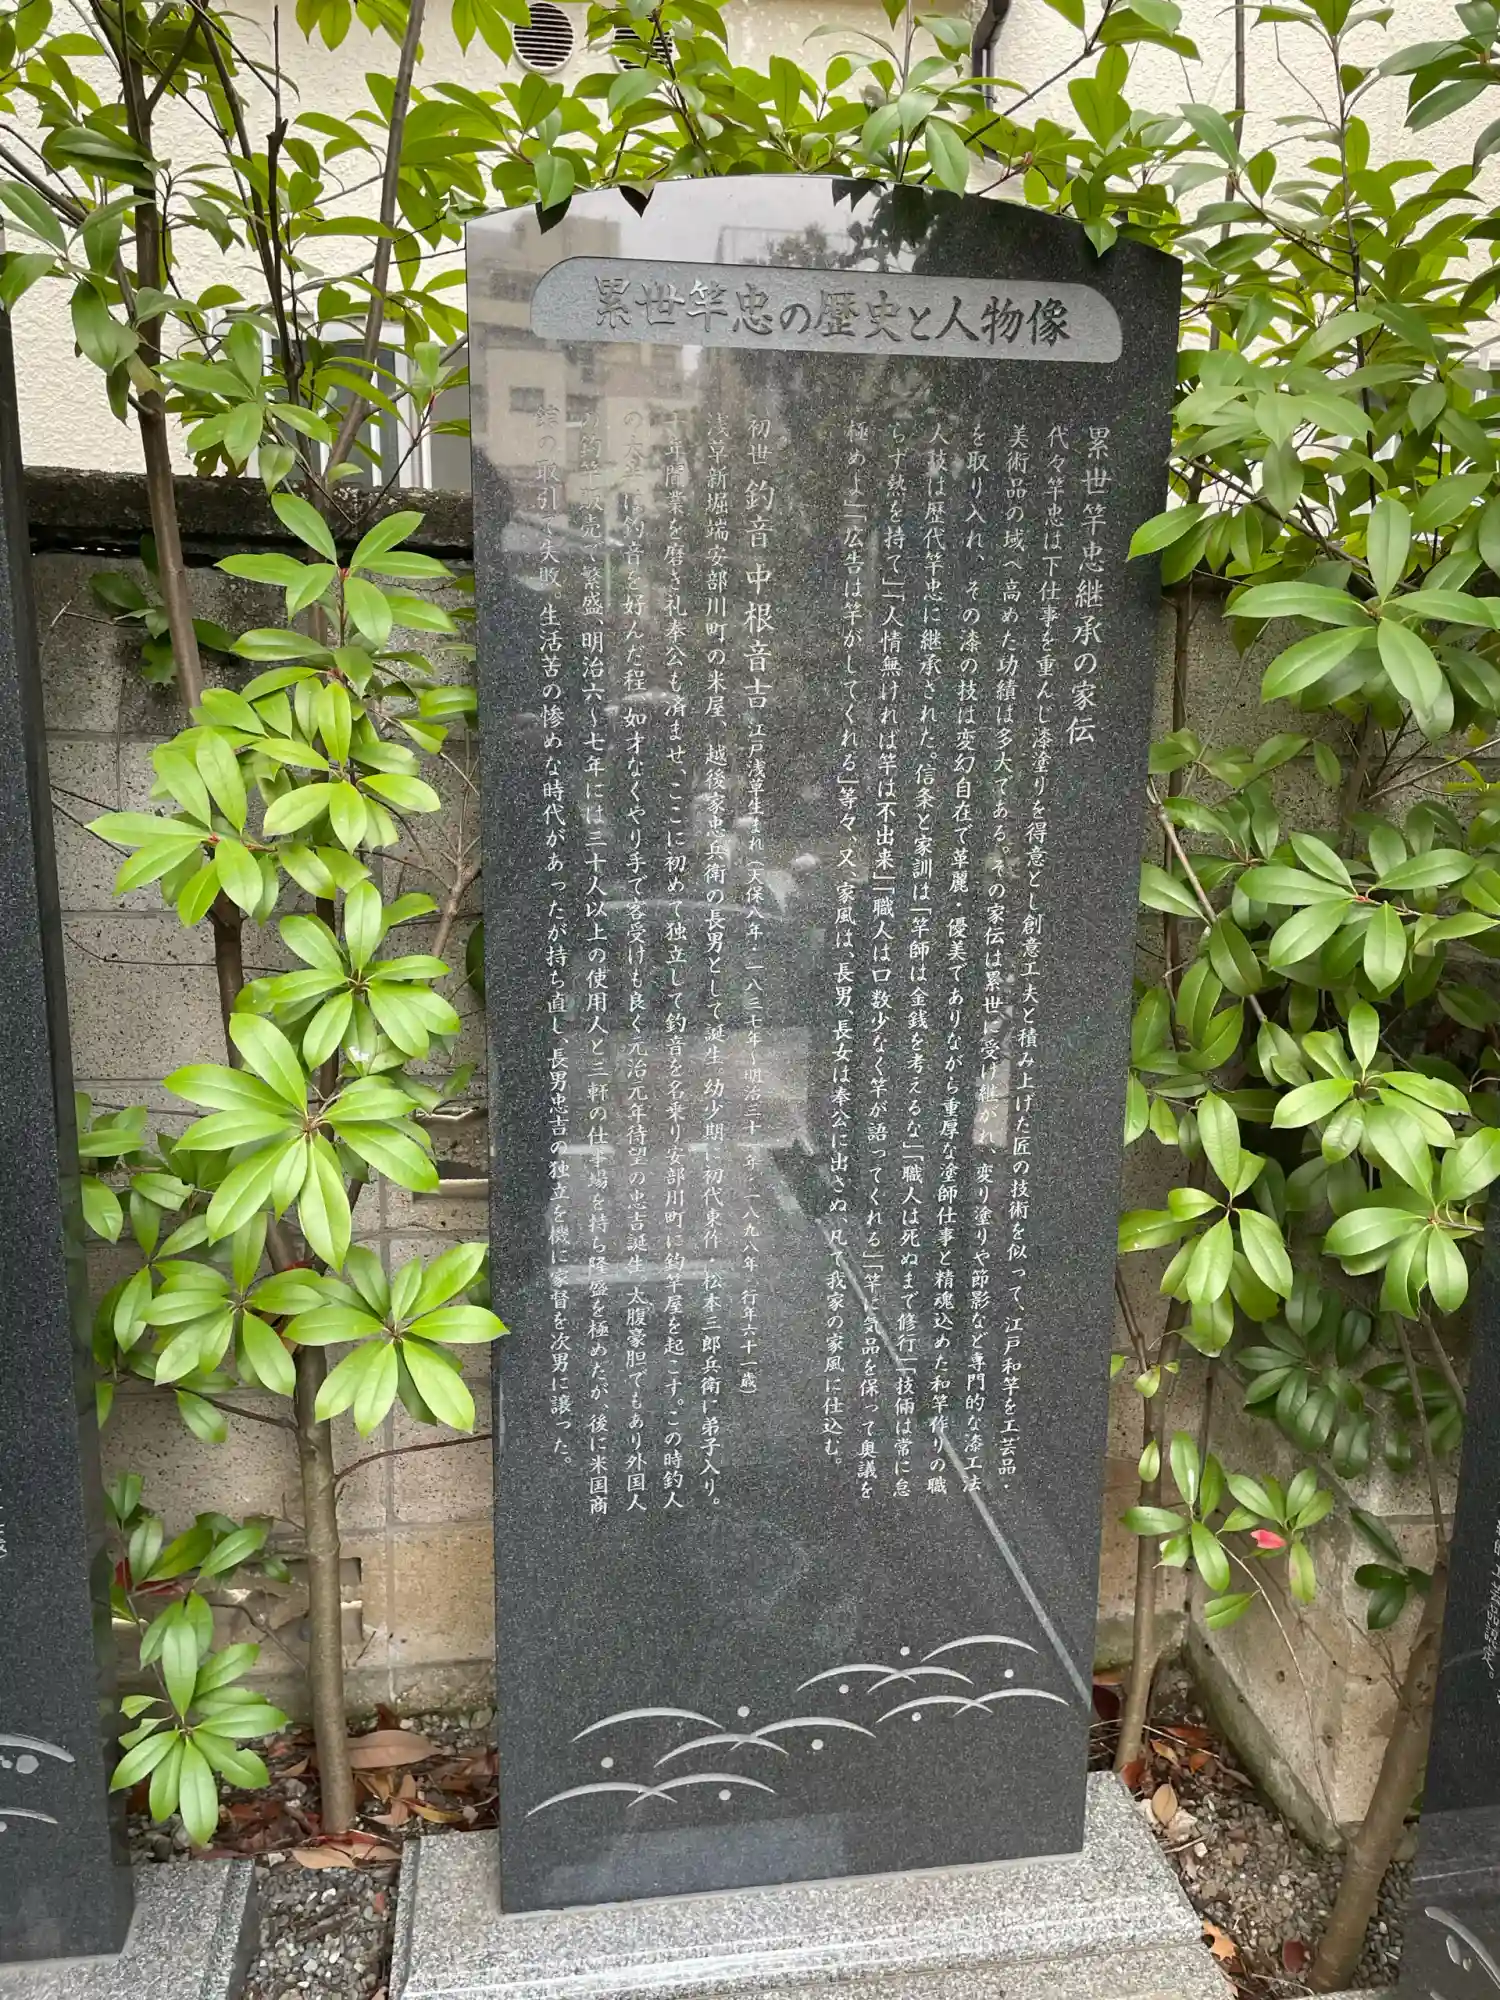 累世竿忠の歴史と人物像
累世竿忠継承の家伝
代々竿忠は下仕事を重んじ漆塗りを得意とし創意工夫と積み上げた匠の技術を似って、江戸和竿を工芸品・
美術品の域へ高めた功績は多大である。その家伝は累世に受け継がれ、変り塗りや節影など専門的な漆工法
を取り入れ、その漆の技は変幻自在で華麗・優美でありながら重厚な塗師仕事と精魂込めた和竿作りの職
人技は歴代竿忠に継承された。信条と家訓は「竿師は金銭を考えるな」「職人は死ぬまで修行」「技倆は常に怠
らず熱を持て」「人情無ければ竿は不出来」「職人は口数少なく竿が語ってくれる」「竿に気品を保って奥議を
極めよ」「広告は竿がしてくれる」等々、又、家風は、長男、長女は奉公に出さぬ、凡て我家の家風に仕込む。
初世 釣音 中根音吉 江戸浅草生まれ(天保八年・一八三七年〜明治三十一年・一八九八年 行年六十一歳)
浅草新堀端安部川町の米屋、越後家忠兵衛の長男として誕生。幼少期に初代東作・松本三郎兵衛に弟子入り。
十年間業を磨き礼奉公も済ませ、ここに初めて独立して釣音を名乗り安部川町に釣竿屋を起こす。この時釣人
の大半は釣音を好んだ程、如才なくやり手で客受けも良く元治元年待望の忠吉誕生、太腹豪胆でもあり外国人
の釣竿販売で繁盛、明治六〜七年には三十人以上の使用人と三軒の仕事場を持ち隆盛を極めたが、後に米国商
館の取引で失敗。生活苦の惨めな時代があったが持ち直し、長男忠吉の独立を機に家督を次男に譲った。